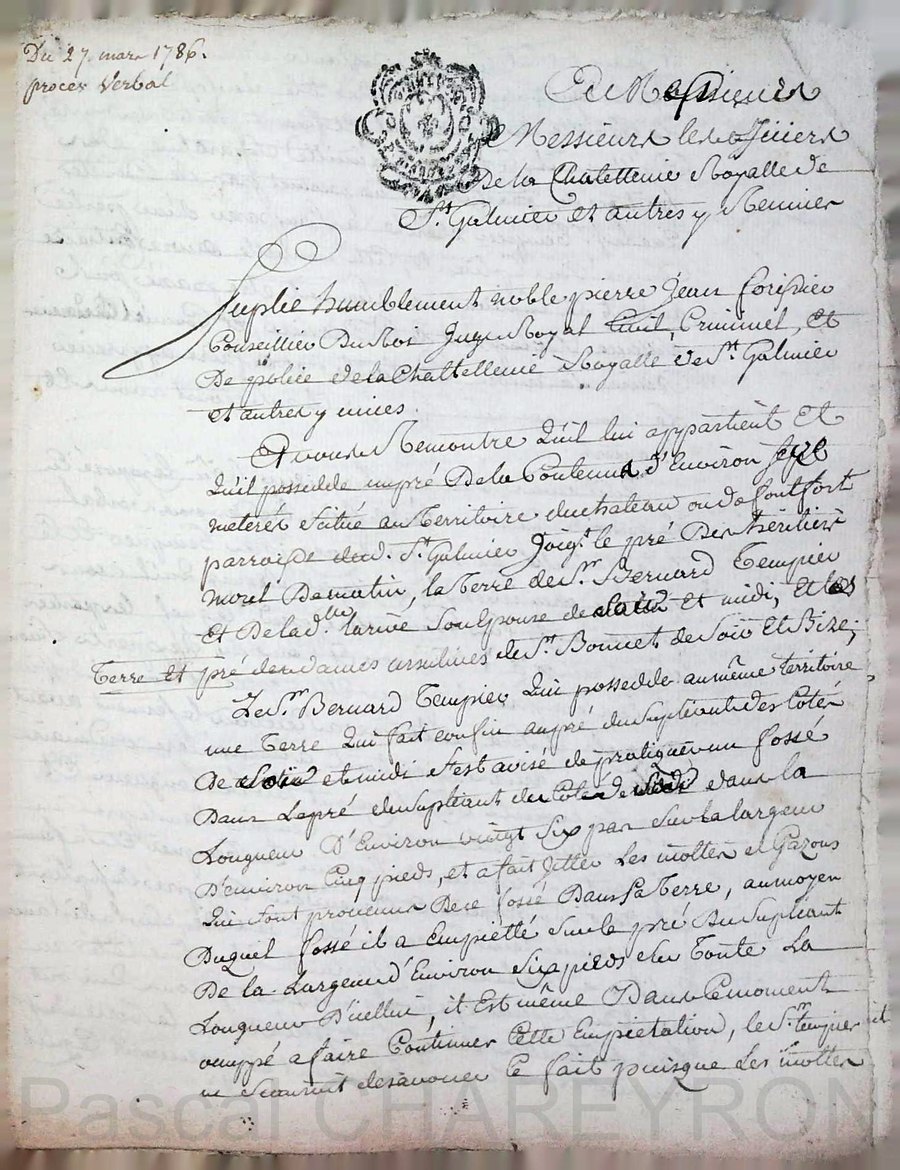 Du 27 mars 1786.
proces Verbal
A Messieurs
Messieurs les officiers
De la Chatellenie Royalle de
St. Galmier et autres y Reunies
Suplie humblement noble pierre Jean
Conseiller Du Roi Juge Royal Civil, Criminel, Et
De police de la Chattellenie Royalle de St. Galmier
et autres y unies.
Et vous Remontre Qu'il lui appartient Et
Qu'il possedde un pré De la Contenue d'Environ sept
meterés situé au Territoire du chateau ou de fontfort
parroisse dud. St. Galmier Joigt. le pré Des heritiers
De matin, la Terre de Sr. Bernard Tempier
Et De la dlle. larive son Epouse de et midi, Et les
Terre et pré des dames ursulines de St. Bonnet de Soir Et Bize;
Le Sr. Bernard Tempier Qui possedde au même Territoire
une Terre Qui fait confin au pré du supliant des Cotés
De et midi s'est avisé de pratiquer un fossé
Dans Le pré du supliant du Coté de dans la
Longueur D'Environ vingt six pas sur La largeur
D'environ Cinq pieds, et a fait jetter Les mottes et Gazons
Qui sont provenus De ce fossé Dans sa Terre, au moyen
Duquel fossé il a Empietté sur le pré Du supliant
De la Largeur d'Environ six pieds sur Toute La
Longueur D'icellui, il Est même Dans ce moment
occuppé a faire Continuer Cette Empietation, le Sr. tempier
ne scauroit desavouer Ce fait puisque Les mottes
Pascal CHAREYRON